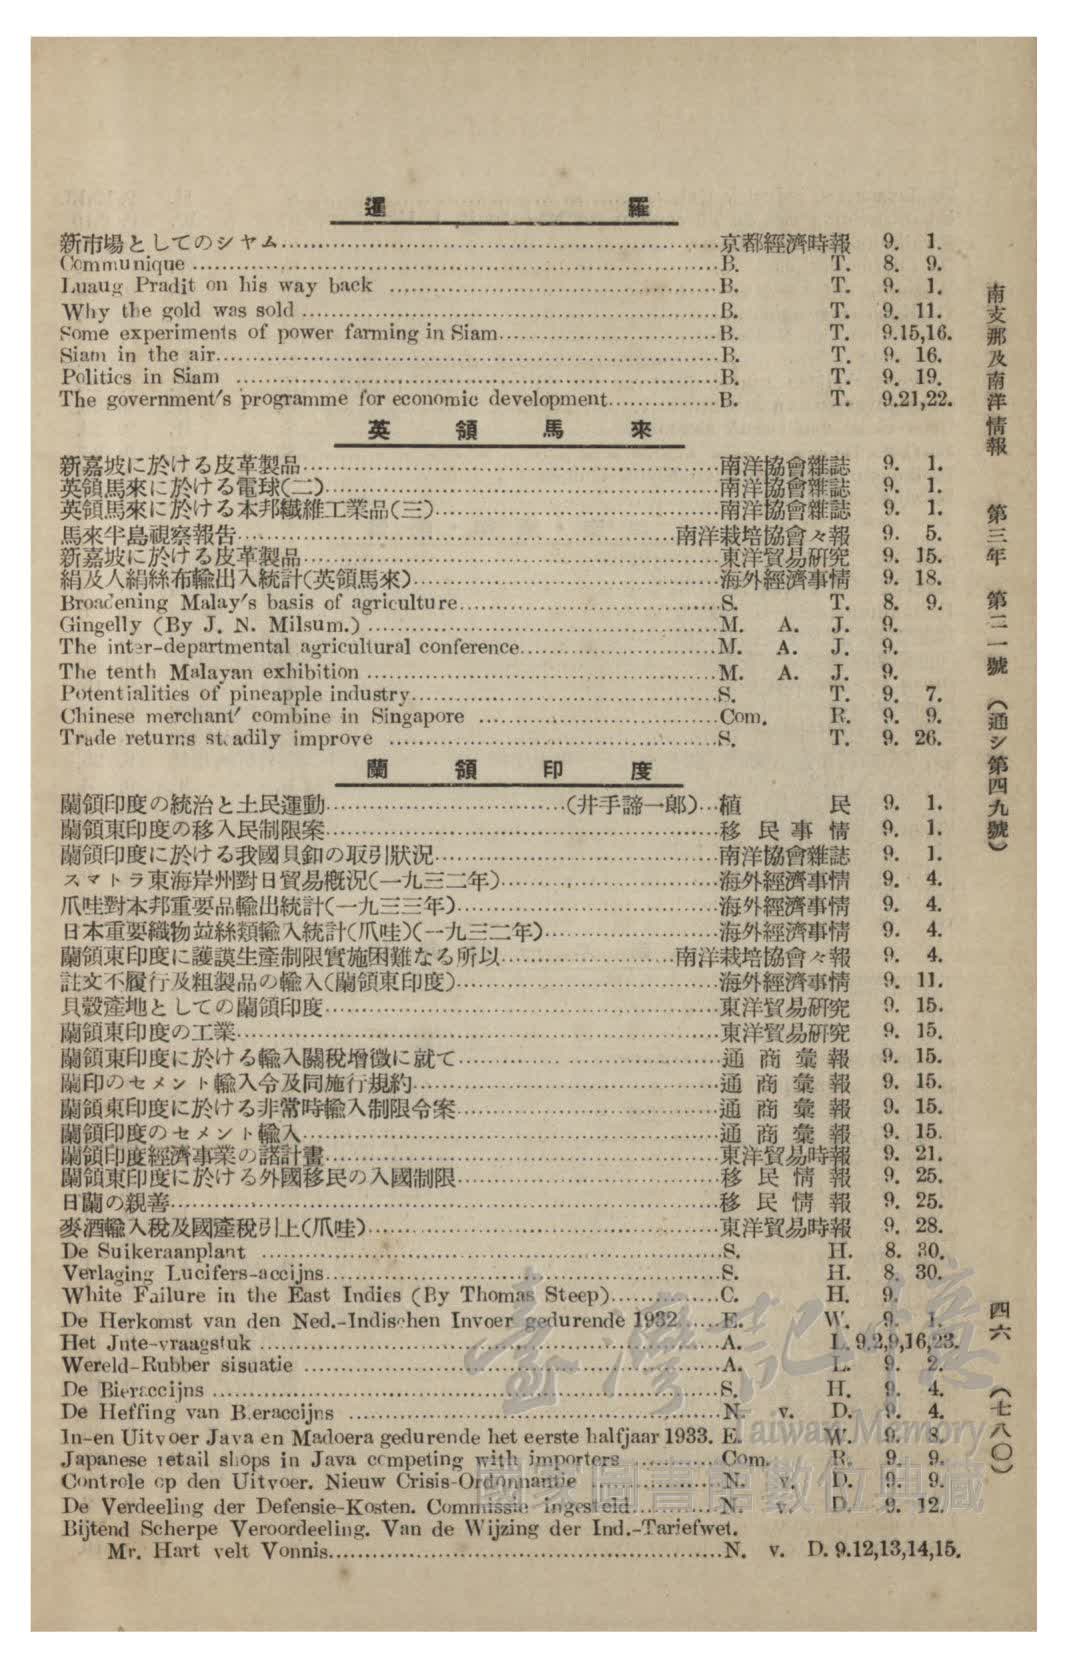 暹羅
新市場としてのシヤム……京都經濟時報 9. 1.
Communique ……B. T. 8. 9.
Luaug Pradit on his way back ……B. T. 9. 1.
Why the gold was sold ……B. T. 9. 11.
Some experiments of power farming in Siam……B. T. 9.15,16.
Siam in the air……B. T. 9. 16.
Politics in Siam ……B. T. 9. 19.
The government's programme for economic development……B. T. 9.21,22.
英領馬來
新嘉坡に於ける皮革製品……南洋協會雜誌 9. 1.
英領馬來に於ける電球(二)……南洋協會雜誌 9. 1.
英領馬來に於ける本邦纎維工業品(三)……南洋協會雜誌 9. 1.
馬來半島視察報告……南洋栽培協會々報 9. 5.
新嘉坡に於ける皮革製品……東洋貿易硏究 9. 15.
絹及人絹絲布輸出入統計(英領馬來)……海外經濟事情 9. 18.
Broadening Malay's basis of agriculture……S. T. 8. 9.
Gingelly (By J. N. Milsum.) ……M. A. J. 9.
The inter-departmental agricultural conference……M. A. J. 9.
The tenth Malayan exhibition ……M. A. J. 9.
Potentialities of pineapple industry……S. T. 9. 7.
Chinese merchant' combine in Singapore ……Com. R. 9. 9.
Trade returns steadily improve ……S. T. 9. 26.
蘭領印度
蘭領印度の統治と土民運動……(井手諦一郎)…植民 9. 1.
蘭領東印度の移入民制限案……移民事情 9. 1.
蘭領印度に於ける我國貝釦の取引狀況……南洋協會雜誌 9. 1.
スマトラ東海岸州對日貿易槪況(一九三二年)……海外經濟事情 9. 4.
爪哇對本邦重要品輸出統計(一九三三年)……海外經濟事情 9. 4.
日本重要織物竝絲類輸入統計(爪哇)(一九三二年)……海外經濟事情 9. 4.
蘭領東印度に護謨生產制限實施困難なる所以……南洋栽培協會々報 9. 4.
註文不履行及粗製品の輸入(蘭領東印度)……海外經濟事情 9. 11.
貝殼產地としての蘭領印度……東洋貿易硏究 9. 15.
蘭領東印度の工業……東洋貿易硏究 9. 15.
蘭領東印度に於ける輸入關稅增徵に就て……通商彙報 9. 15.
蘭印のセメント輸入令及同施行規約……通商彙報 9. 15.
蘭領東印度に於ける非常時輸入制限令案……通商彙報 9. 15.
蘭領印度のセメント輸入……通商彙報 9. 15.
蘭領印度經濟事業の諸計畫……東洋貿易時報 9. 21.
蘭領東印度に於ける外國移民の入國制限……移民情報 9. 25.
日蘭の親善……移民情報 9. 25.
麥酒輸入稅及國產稅引上(爪哇)……東洋貿易時報 9. 28.
De Suikeraanplant ……S. H. 8. 30.
Verlaging Lucifers-accijns……S. H. 8. 30.
White Failure in the East Indies (By Thomas Steep)……C. H. 9.
De Herkomst van den Ned.-Indischen Invoer gedurende 1932……E. W. 9. 1.
Het Jute-vraagstuk ……A. L. 9.2,9,16,23.
Wereld-Rubber sisuatie ……A. L. 9. 2.
De Bieraccijns ……S. H. 9. 4.
De Heffing van Bieraccijns ……N. v. D. 9. 4.
In-en Uitvoer Java en Madoera gedurende het eerste halfjaar 1933. E. W. 9. 8.
Japanese retail shops in Java competing with importers ……Com. R. 9. 9.
Controle op den Uitvoer. Nieuw Crisis-Ordonnantie ……N. v. D. 9. 9.
De Verdeeling der Defensie-Kosten. Commissie ingesteld……N. v. D. 9. 12.
Bijtend Scherpe Veroordeeling. Van de Wijzing der Ind.-Tariefwet.
Mr. Hart velt Vonnis……N. v. D. 9.12,13,14,15.
南支那及南洋情報 第三年 第二一號 (通シ第四九號)
四六 (七八〇)
臺灣記憶
Taiwan Memory
國家圖書館數位典藏